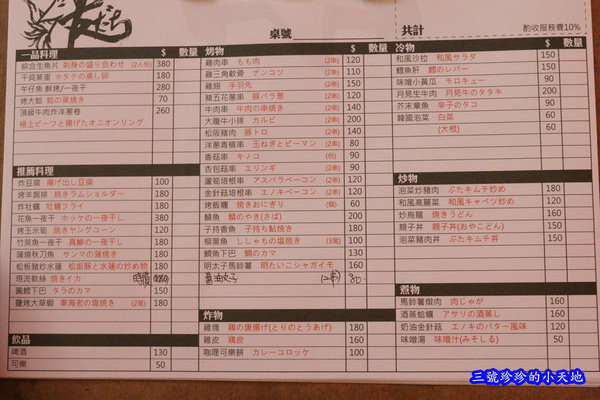 桌號
共計
酌收服務費10%
一品料理 $ 數量
綜合生魚片 刺身の盛り合わせ (2人份) 380
干貝蒸蛋 ホタテの蒸し卵 180
午仔魚 鮮烤/一夜干 280
烤大蛤 蛤の蒸焼き 70
頂級牛肉炸洋蔥卷 260
極上ビーフと揚げたオニオンリング
推薦料理 $ 數量
炸豆腐 揚げ出し豆腐 100
烤羊肩排 焼きラムショルダー 180
炸牡蠣 牡蠣フライ 180
花魚一夜干 ホッケの一夜干し 380
烤玉米筍 焼きヤングコーン 120
竹筴魚一夜干 真鯵の一夜干し 180
蒲燒秋刀魚 サンマの蒲焼き 180
松板豬炒水蓮 松坂豚と水蓮の炒め物 180
現流軟絲 焼きイカ 時價
圓鱈下巴 タラのカマ 150
鹽烤大草蝦 車海老の塩焼き (2尾) 180
飲品 $ 數量
啤酒 130
可樂 50
烤物 $ 數量
雞肉串 もも肉 (2串) 120
雞三角軟骨 ナンコツ (2串) 110
雞翅 手羽先 (2串) 150
豬五花蔥串 豚バラ蔥 (2串) 120
牛肉串 牛肉の串焼き (2串) 140
大腹牛小排 カルビ (2串) 200
松阪豬肉 豚トロ (2串) 140
洋蔥青椒串 玉ねぎとピーマン (2串) 80
香菇串 キノコ (份) 90
杏包菇串 エリンギ (2串) 90
蘆筍培根串 アスパラベーコン (2串) 120
金針菇培根串 エノキベーコン (2串) 120
烤飯糰 焼きおにぎり (個) 60
鯖魚 鯖のやき(さば) 200
子持香魚 子持ち鮎焼き 180
柳葉魚 ししゃもの塩焼き (3尾) 100
鯛魚下巴 鯛のカマ 130
明太子馬鈴薯 明たいこシャガイモ 160
醬油丸子 (2串) 80
炸物 $ 數量
雞塊 鶏の唐揚げ(とりのとうあげ) 180
雞皮 鶏皮 160
咖哩可樂餅 カレーコロッケ 100
冷物 $ 數量
和風沙拉 和風サラダ 150
鱈魚肝 鱈のレバー 150
味噌小黃瓜 モロキュー 90
月見生牛肉 月見牛のタタキ 200
芥末章魚 辛子のタコ 90
韓國泡菜 白菜 60
(大根) 60
炒物 $ 數量
泡菜炒豬肉 ぶたキムチ炒め 180
和風高麗菜 和風キャベツ炒め 120
炒烏龍 焼きうどん 160
親子丼 親子丼(おやこどん) 150
泡菜豬肉丼 ぶたキムチ丼 150
煮物 $ 數量
馬鈴薯燉肉 肉じゃが 160
酒蒸蛤蠣 アサリの酒蒸し 160
奶油金針菇 エノキのバター風味 120
味噌湯 味噌汁(みそしる) 50
三號珍珍的小天地